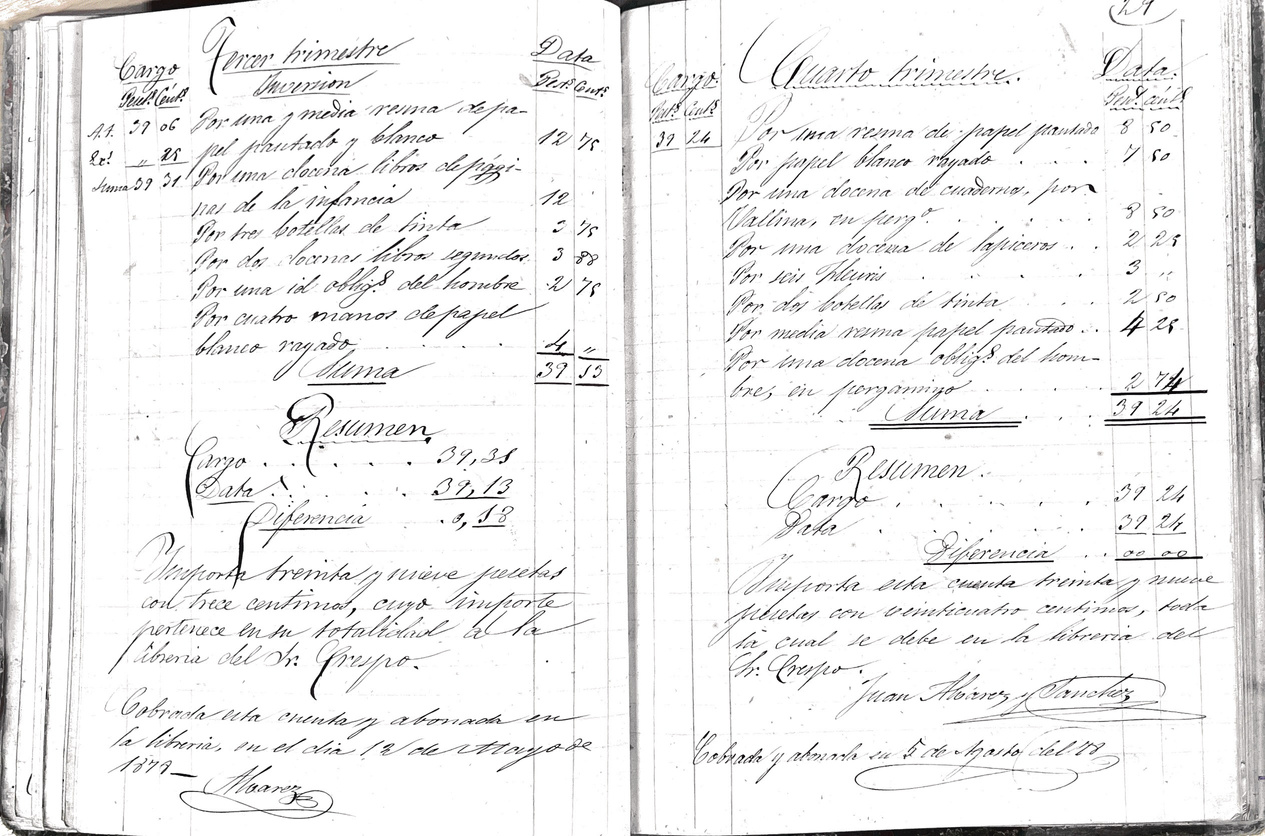 Tercer trimestre
Cargo Data
Inversion
Peset.s Cént.s Pest.s Cent.s
A.t. 39 06 Por una y media resma de pa-
pel pautado y blanco 12 75
" 25
Suma 39 31 Por una docena libros de pági-
nas de la infancia 12
Por tres botellas de tinta 3 75
Por dos docenas libros segundos 3 88
Por una id oblig.s del hombre 2 75
Por cuatro manos de papel
blanco rayado . . . . . 4 "
Suma 39 13
Resumen
Cargo . . . . . 39,31
Data . . . . . 39,13
Diferencia . . 0,18
Importa treinta y nueve pesetas
con trece centimos, cuyo importe
pertenece en su totalidad a la
libreria del Sr. Crespo.
Cobrada esta cuenta y abonada en
la libreria, en el dia 12 de Mayo de
1878—
Alvarez
29
Cuarto trimestre.
Cargo. Data.
Pest.s Cent.s Peset.s cént.s
39 24 Por una resma de papel pautado 8 50
Por papel blanco rayado . . . . 7 50
Por una docena de cuadernos, por
Vallina, en perg.o . . . . . 8 50
Por una docena de lapiceros . . 2 25
Por seis . . . . . 3 "
Por dos botellas de tinta . . 2 50
Por media resma papel pautado . . 4 25
Por una docena oblig.s del hom-
bre, en pergamino . . . . . 2 74
Suma . . . 39 24
Resumen.
Cargo . . . . . 39 24
Data . . . . . 39 24
Diferencia . . 00 00
Importa esta cuenta treinta y nueve
pesetas con veinticuatro centimos, toda
la cual se debe en la libreria del
Sr. Crespo.
Juan Alvarez y Sanchez
Cobrada y abonada en 5 de Agosto del 78